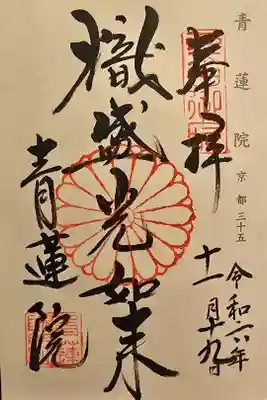 青蓮院 京都三十五
奉拝
令和六年
十一月十九日
熾盛光如来
青蓮院